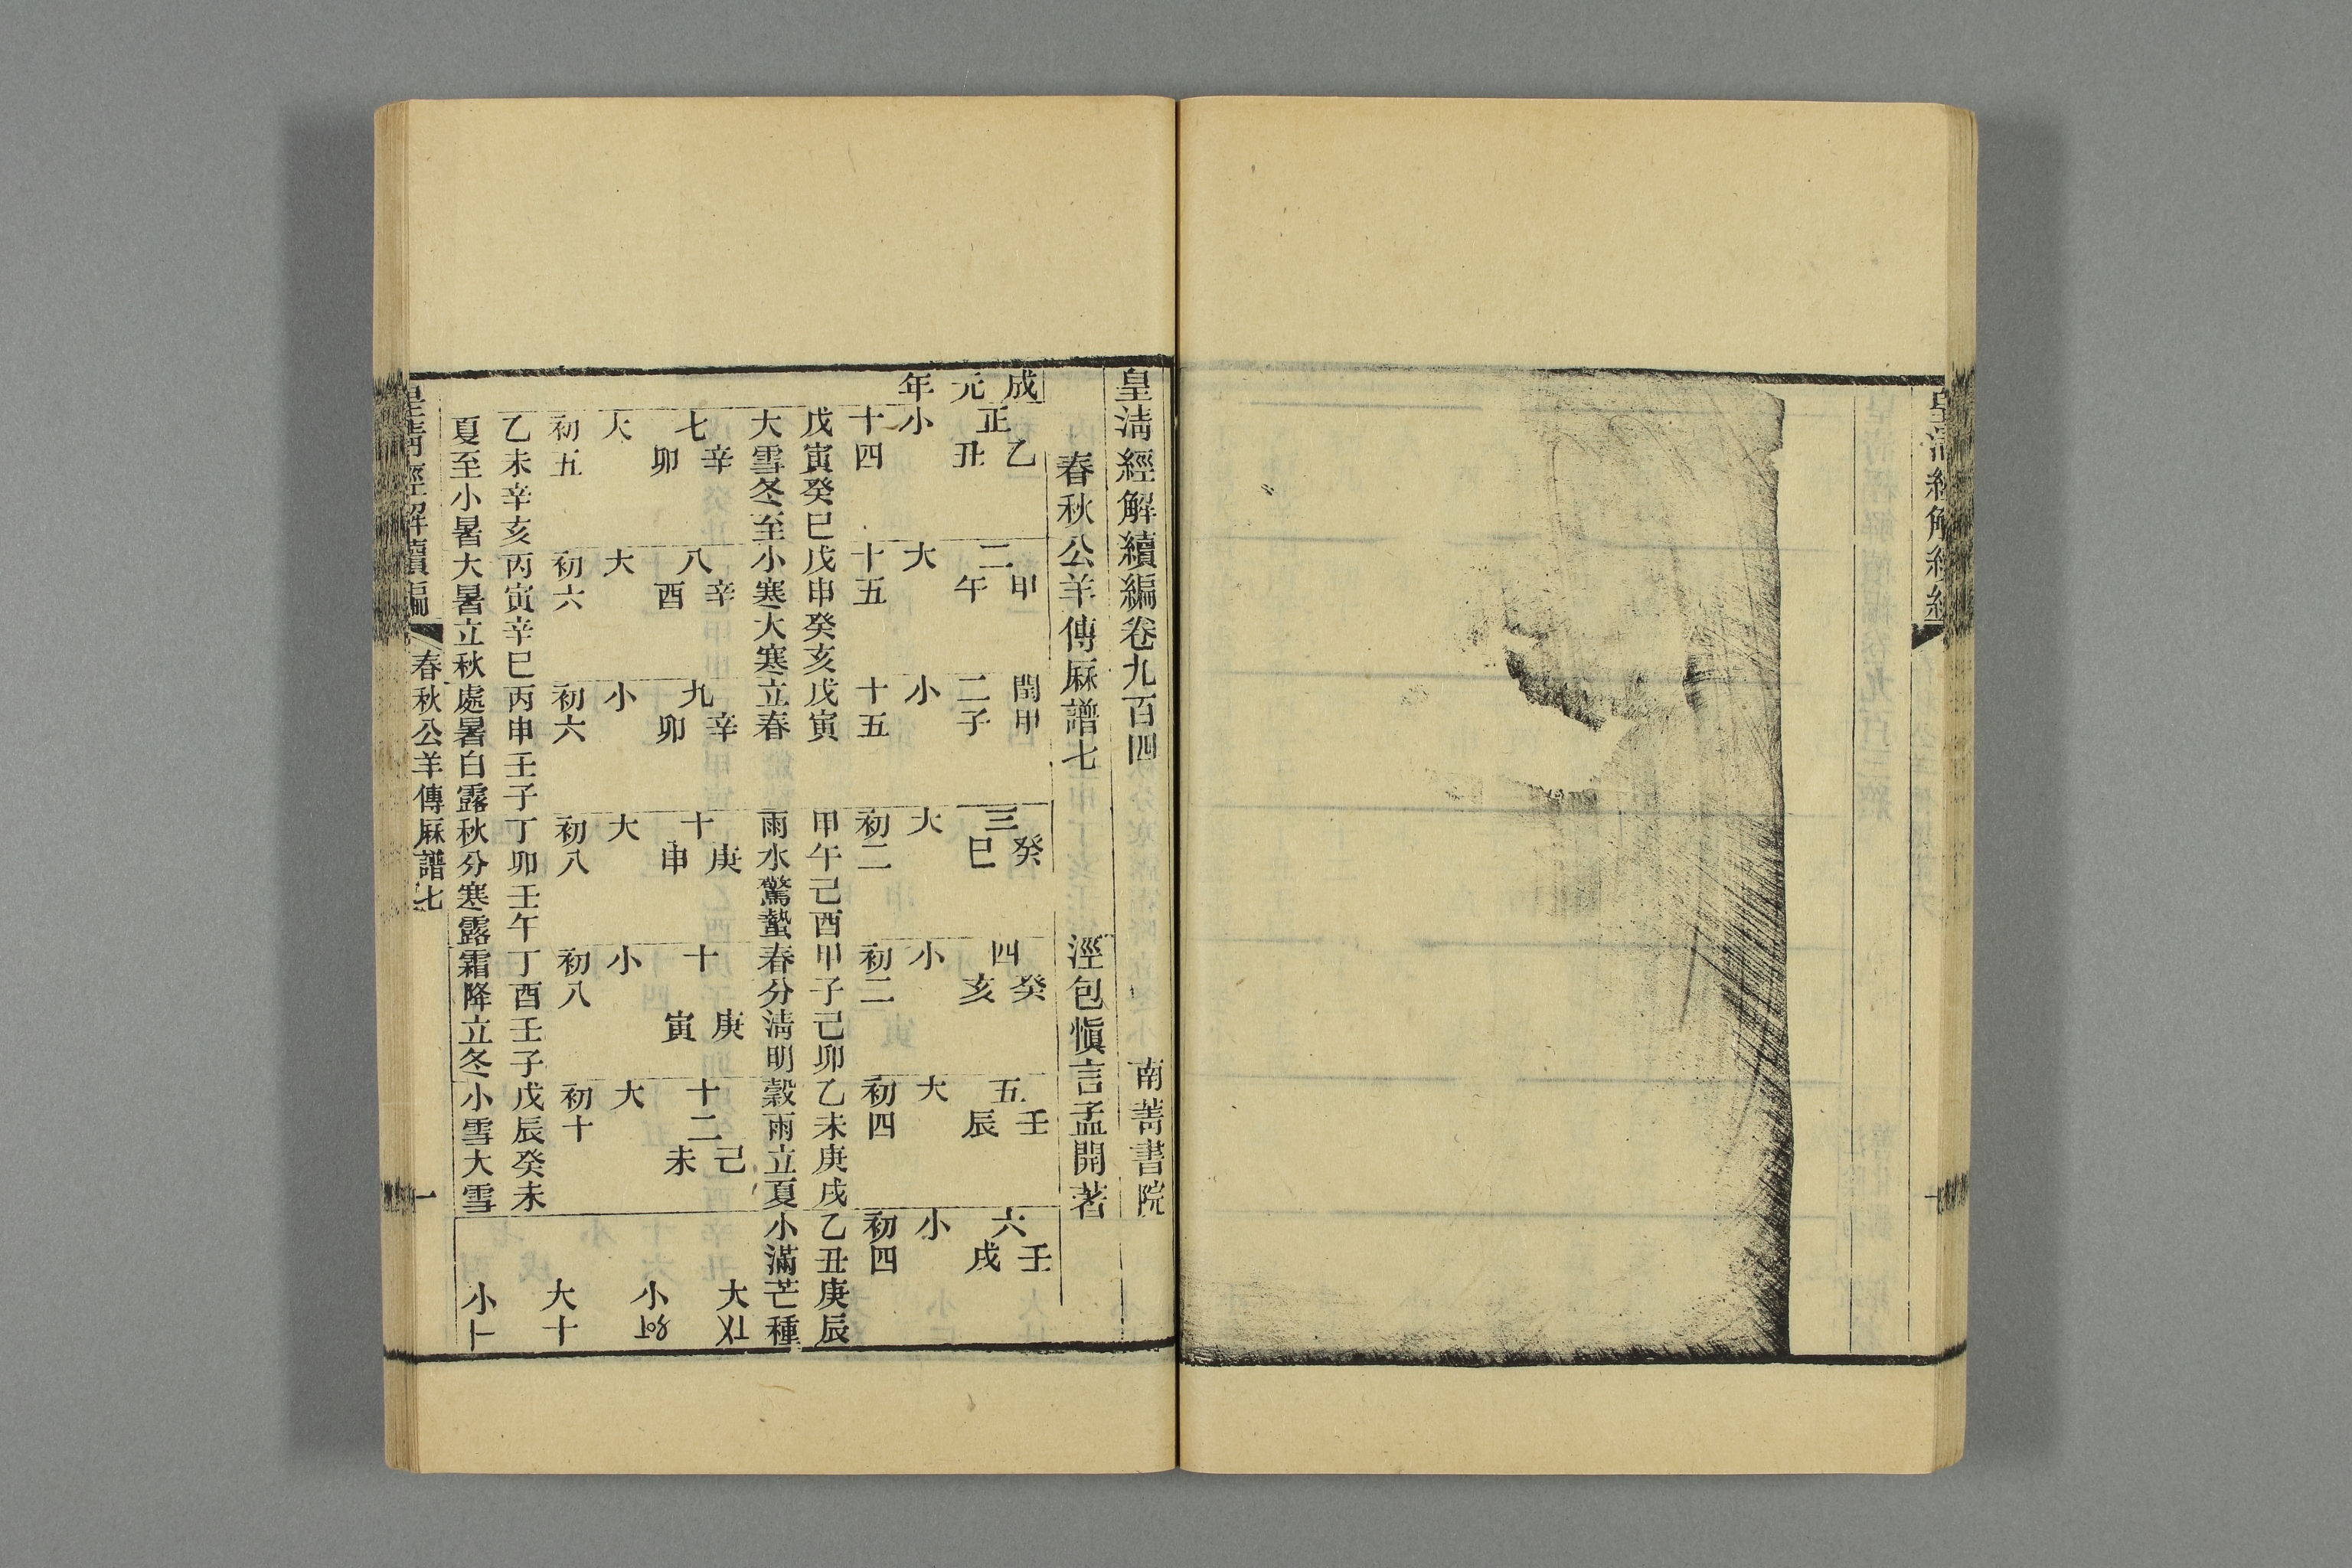 皇清經解續編
皇清經解續編卷九百四
南菁書院
春秋公羊傳厤譜七
涇包愼言孟開著
成元年
正 乙丑 小 十四 戊寅癸巳 大雪冬至
二 甲午 大 十五 戊申癸亥 小寒大寒
閏二 甲子 小 十五 戊寅 立春
三 癸巳 大 初二 甲午己酉 雨水驚蟄
四 癸亥 小 初二 甲子己卯 春分淸明
五 壬辰 大 初四 乙未庚戌 穀雨立夏
六 壬戌 小 初四 乙丑庚辰 小滿芒種
七 辛卯 大 初五 乙未辛亥 夏至小暑
八 辛酉 大 初六 丙寅辛巳 大暑立秋
九 辛卯 小 初六 丙申壬子 處暑白露
十 庚申 大 初八 丁卯壬午 秋分寒露
十 庚寅 小 初八 丁酉壬子 霜降立冬
十二 己未 大 初十 戊辰癸未 小雪大雪
大
小
大十
小
皇淸經解續編
春秋公羊傳厤譜七
一